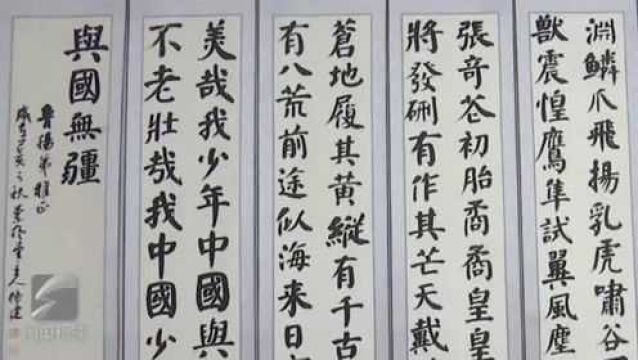 淵鱗爪飛揚乳虎嘯谷
獸震惶鷹隼試翼風塵
張奇花初胎矞矞皇皇
將發硎有作其芒天戴
蒼地履其黃縱有千古
有八荒前途似海來日
美哉我少年中國與
不老壯哉我中國少
與國無疆
魯揚弟雅正
歲在己亥之秋